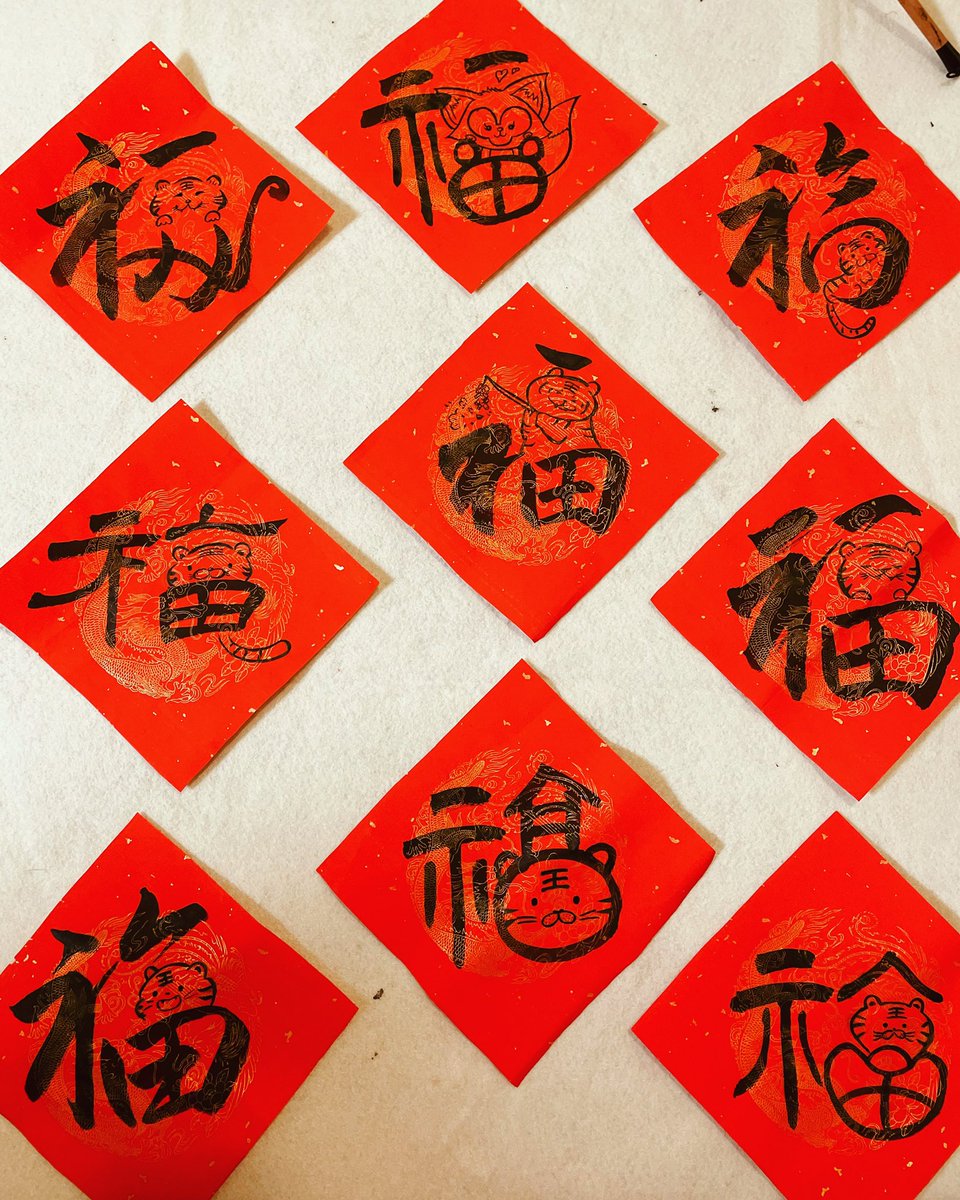 福
福
福
福
福
福
福
福
福